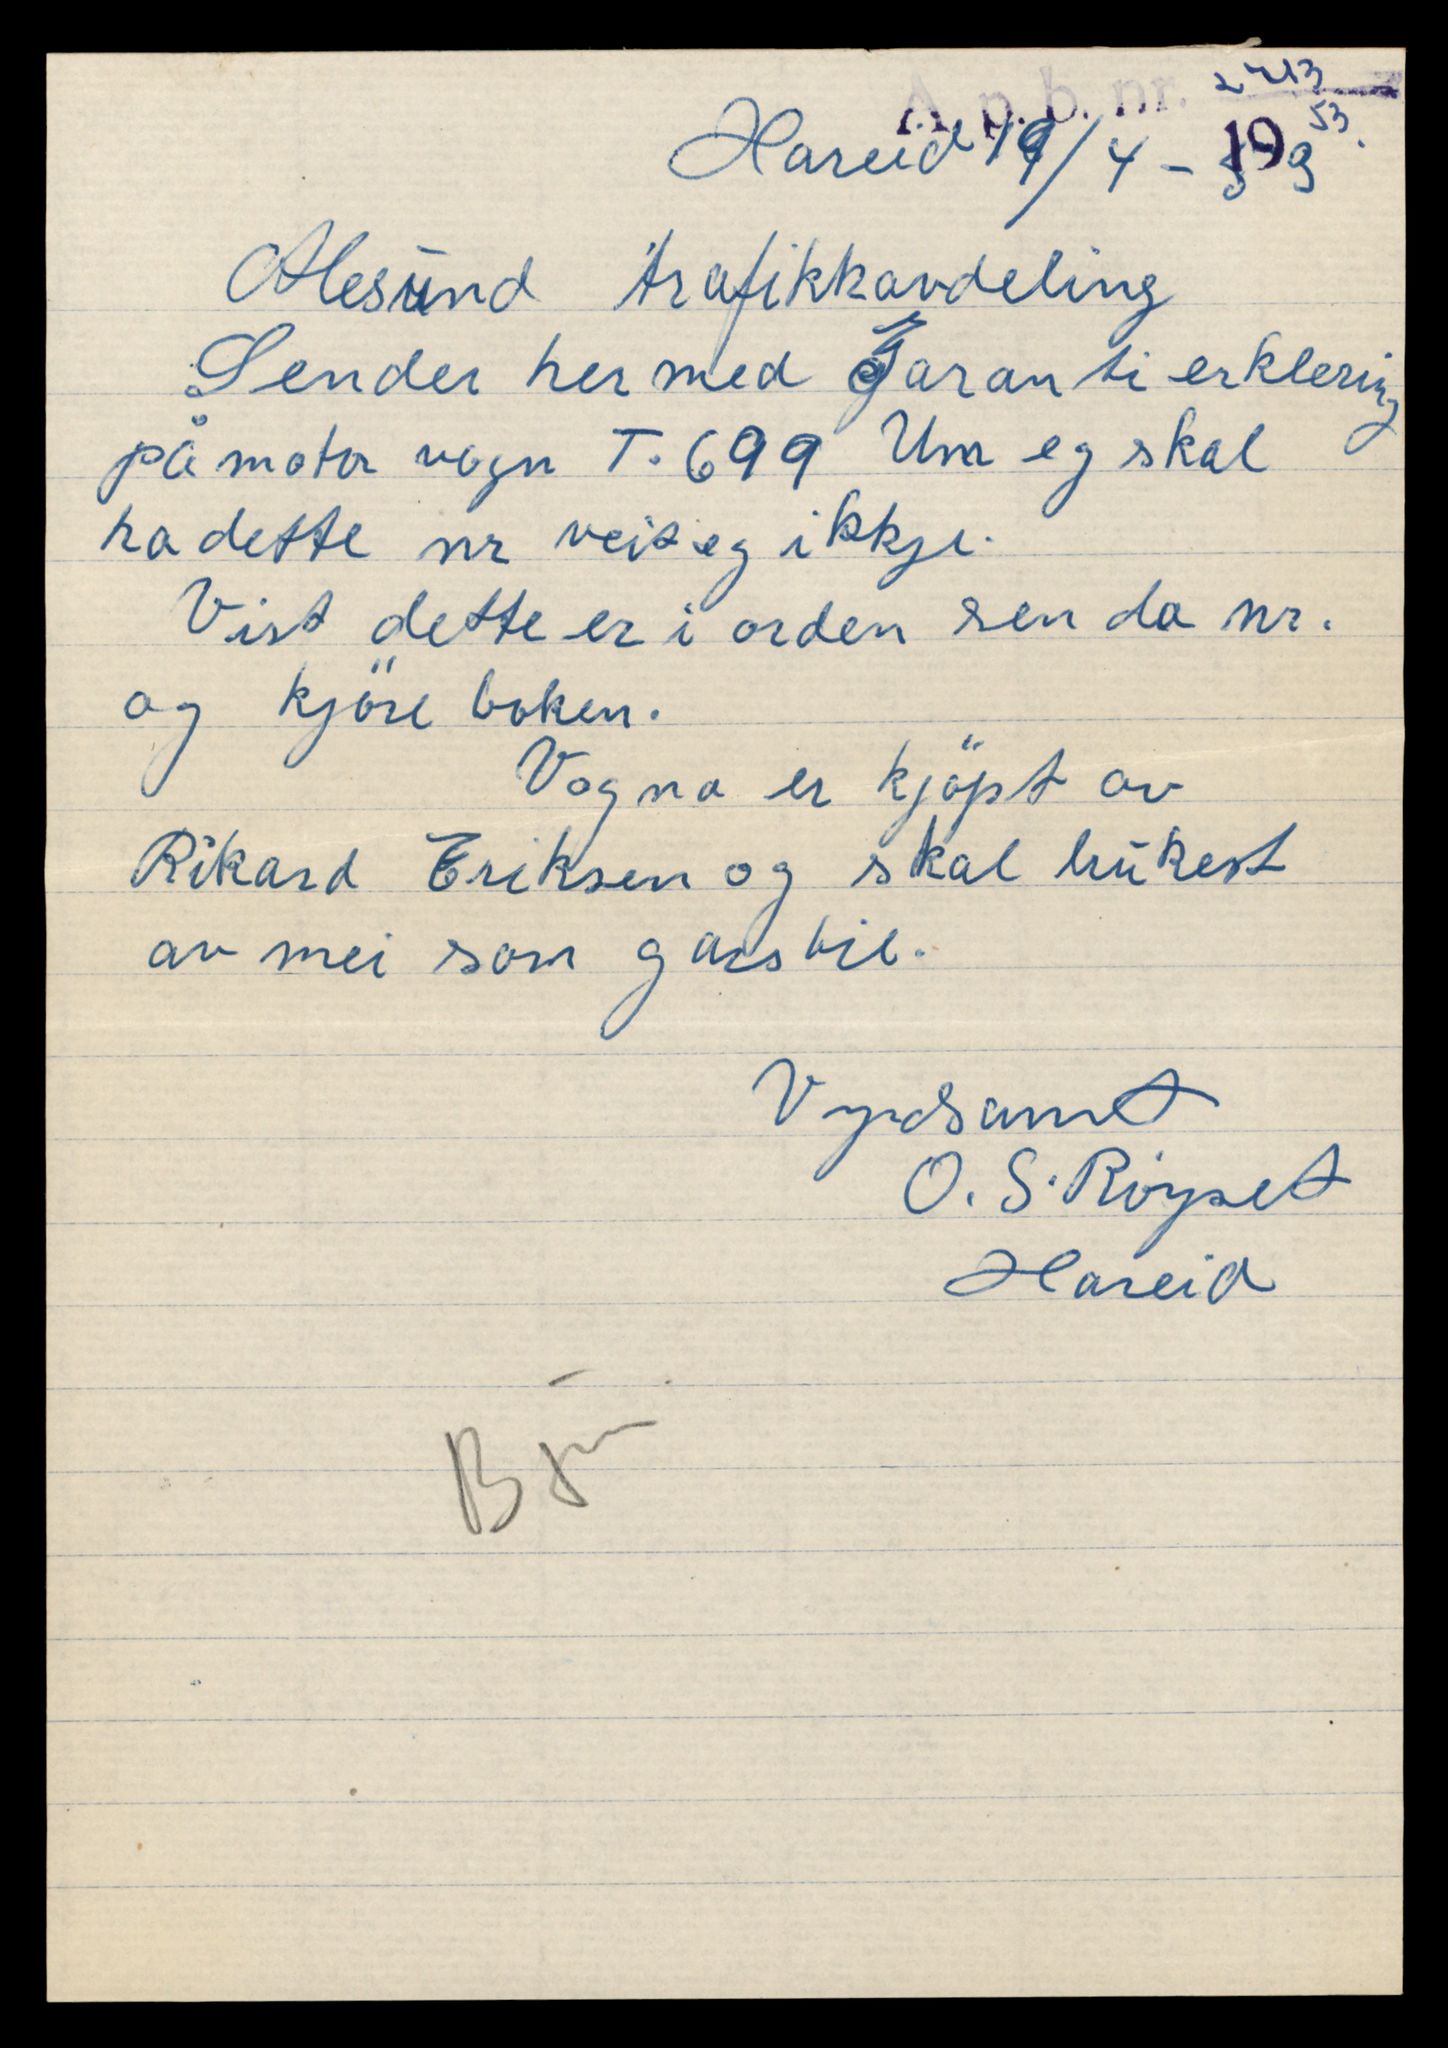 Å. p. b. nr. 2413
1953.
Hareid 19/4 - 53
Alesund trafikkavdeling
Sender her med Garanti erklering
på motor vogn T. 699 Um eg skal
ha dette nr veit eg ikkje.
Vist dette er i orden sen da nr.
og kjöre boken.
Vogna er kjöpt av
Rikard Eriksen og skal brukest
av mei som garsbil.
Vyrdsamt
O. S. Röyset
Hareid